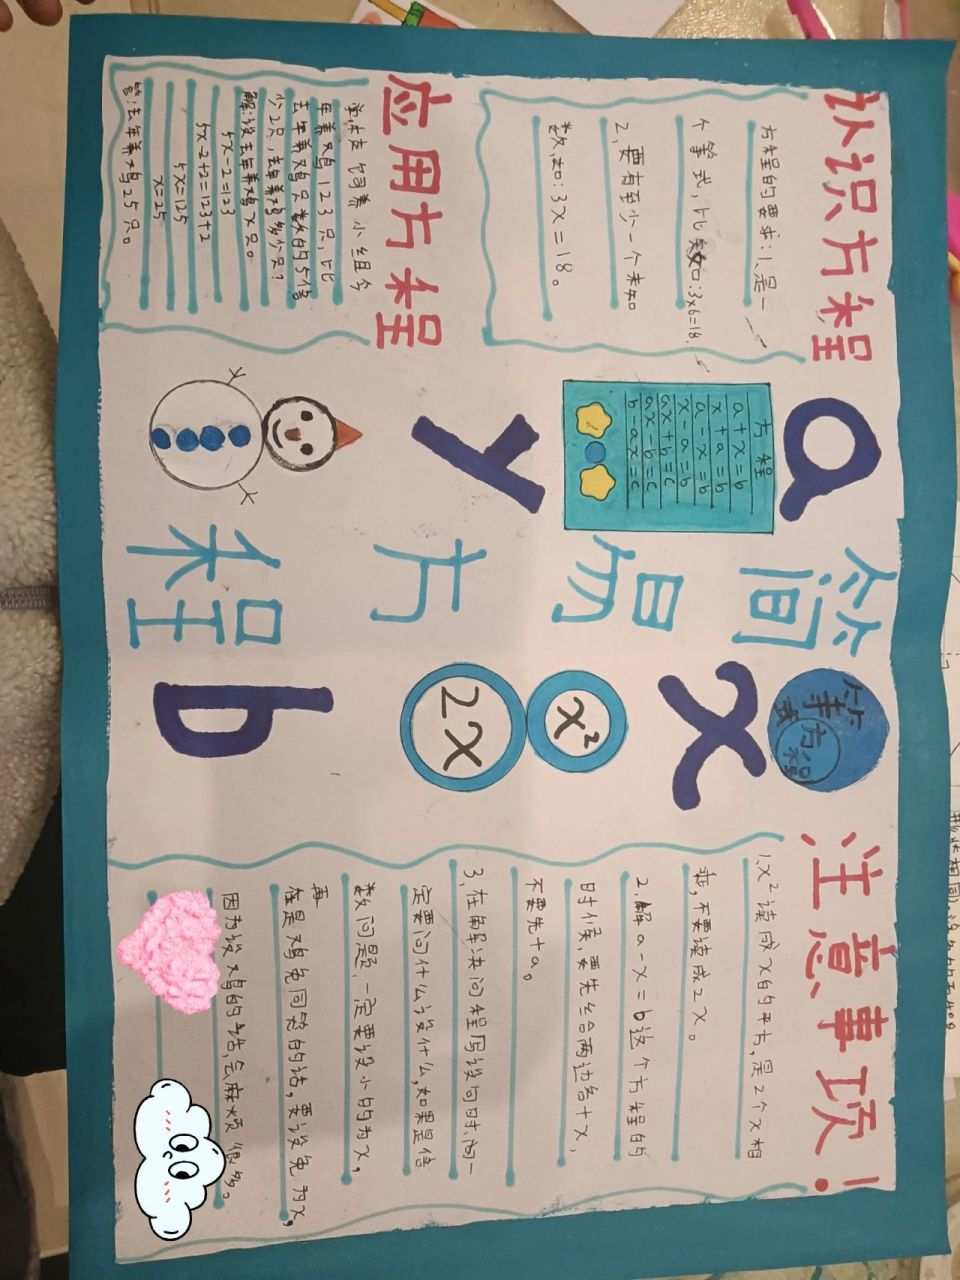 认识方程
方程的要求:1、是一
个等式,比如:3×6=18.
2、要有至少一个未知
数,如:3x=18。
应用方程
学校饲养小组今
年养鸡123只,比
去年养鸡只数的5倍
少2只,去年养鸡多少只?
解:设去年养鸡x只。
5x-2=123
5x-2+2=123+2
5x=125
x=25
答:去年养鸡25只。
a
方程
a+x=b
x+a=b
a-x=b
x-a=b
ax+b=c
ax-b=c
b-ax=c
y
简易方程
等式
方程
x
x²
2x
b
注意事项!
1、x²读成x的平方,是2个x相
乘,不要读成2x。
2、解a-x=b这个方程的
时候,要先给两边各+x,
不要先+a。
3、在解决问程写设句时,问一
定要问什么设什么,如果是倍
数问题,一定要设小的为x,
再
在是鸡兔同笼的话,要设兔为x,
因为设鸡的话,会麻烦很多。